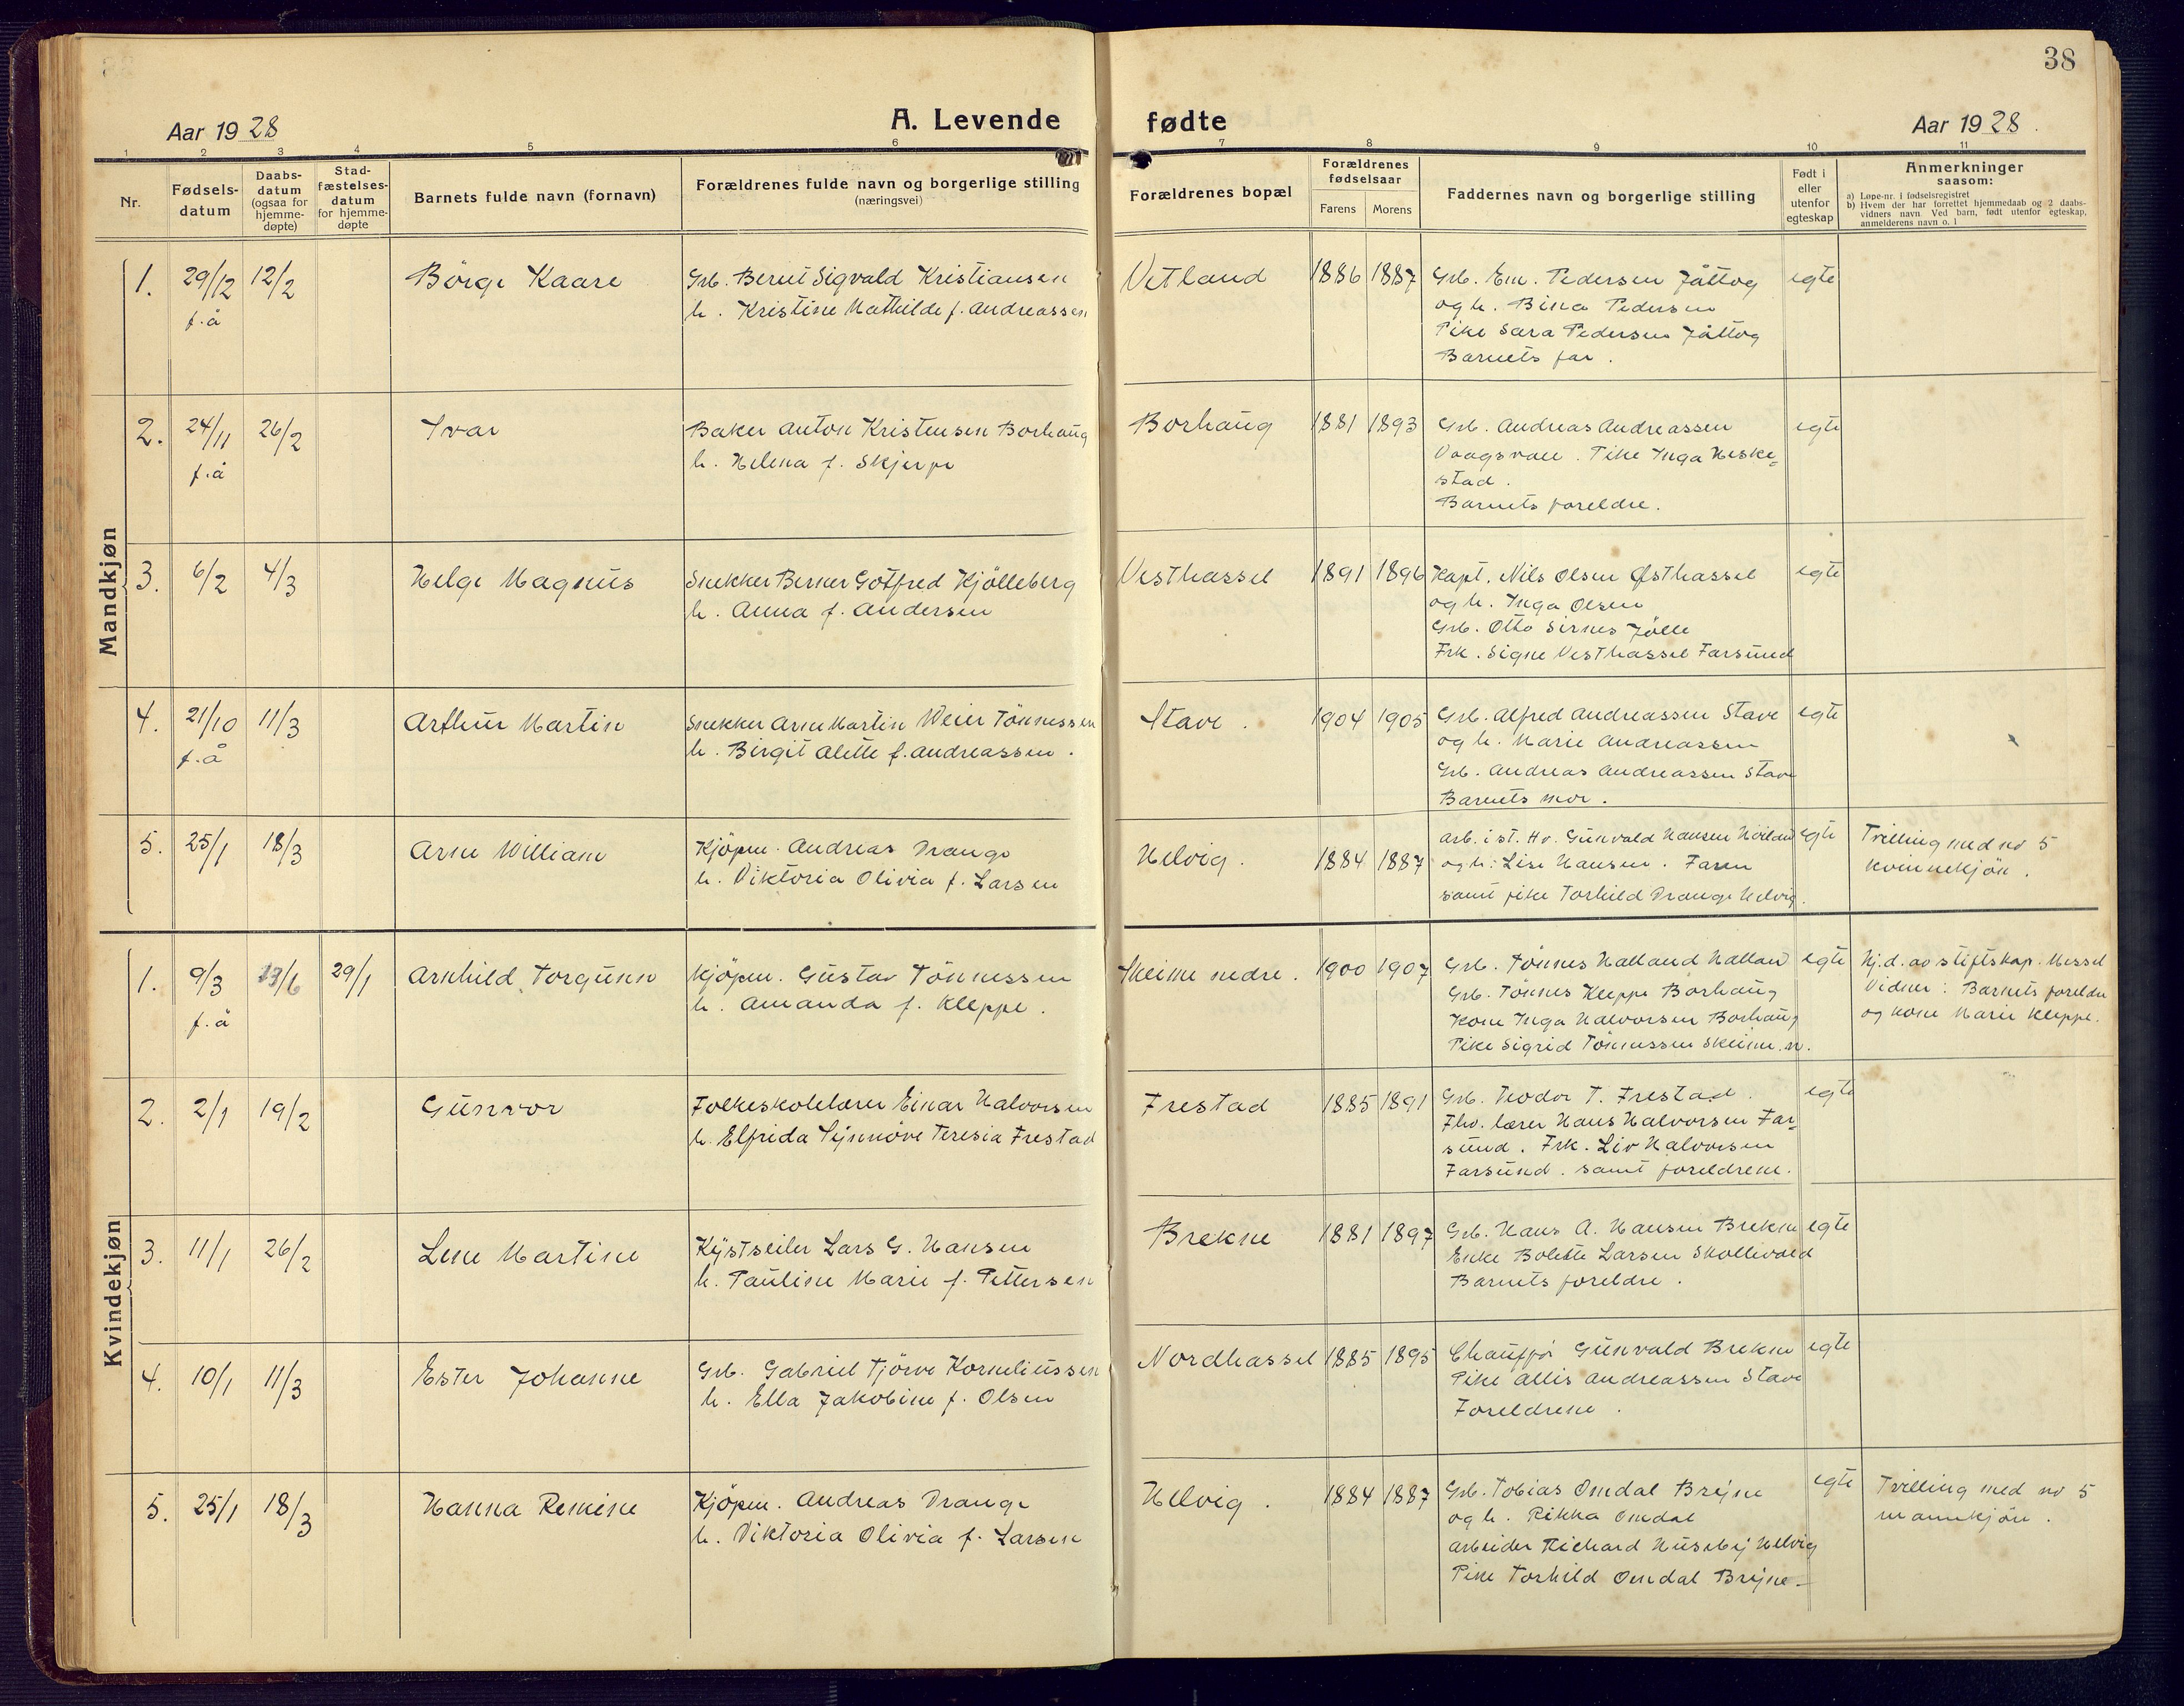 38
Aar 1928
A. Levende fødte
Aar 1928.
1 2 3 4 5 6 7 8 9 10 11
Nr.
Fødsels-
datum
Daabs-
datum
(ogsaa for
hjemme-
døpte)
Stad-
fæstelses-
datum
for hjemme-
døpte
Barnets fulde navn (fornavn)
Forældrenes fulde navn og borgerlige stilling
(næringsvei)
Forældrenes bopæl
Forældrenes
fødselsaar
Farens Morens
Faddernes navn og borgerlige stilling
Født i
eller
utenfor
egteskap
Anmerkninger
saasom:
a) Løpe-nr. i fødselsregistret
b) Hvem der har forrettet hjemmedaab og 2 daabs-
vidners navn Ved barn, født utenfor egteskap,
anmelderens navn o. l
Mandkjøn
1. 29/12 f.å 12/2 Börge Kaare
Grb. Bernt Sigvald Kristiansen
h. Kristine Mathilde f. Andreassen
Vetland 1886 1887
Grb. Em. Pedersen Jåttog
og h. Bina Pedersen
Pike Sara Pedersen Jåttog
Barnets far.
egte
2. 24/11 f.å 26/2 Ivar
Baker Anton Kristensen Borhaug
h. Helena f. Skjerpe
Borhaug 1881 1893
Grb. Andreas Andreassen
Vaagsvoll. Pike Inga Heske-
stad.
Barnets foreldre.
egte
3. 6/2 4/3 Helge Magnus
Snekker Berner Gotfred Kjölleberg
h. Anna f. Andersen
Vesthassel 1891 1896
Kapt. Nils Olsen Østhassel
og h. Inga Olsen
Grb. Otto Sirnes Jölle
Frk. Signe Vesthassel Farsund
egte
4. 21/10 f.å 11/3 Arthur Martin
Snekker Arne Martin Weier Tönnessen
h. Birgit Alette f. Andreassen.
Stave. 1904 1905
Grb. Alfred Andreassen Stave
og h. Marie Andreassen
Grb. Andreas Andreassen Stave
Barnets mor.
egte
5. 25/1 18/3 Arne William
Kjöpm. Andreas Drange
h. Viktoria Olivia f. Larsen
Helvig. 1884 1887
Arb. i st. Hv. Gunvald Hansen
og h: Lise Hansen. Faren
samt pike Torhild Drange Helvig.
egte
Tvilling med no 5
kvinnekjön.
Kvindekjøn
1. 9/3 f.å 29/1 Arnhild Torgunn
Kjöpm. Gustav Tönnessen
h. Amanda f. Kleppe.
Skeime nedre. 1900 1907
Grb. Tönnes Halland Halland
Grb. Tönnes Kleppe Borhaug
Kone Inga Halvorsen Borhaug
Pike Sigrid Tönnessen Skeime n.
egte
Hj.d. av stiftskap. Hessel
Vidner: Barnets foreldre
og kone Marie Kleppe.
2. 2/1 19/2 Gunvor
Folkeskolelærer Einar Halvorsen
h. Elfrida Synnöve Teresia Frestad
Frestad 1885 1891
Grb. Teodor T. Frestad.
Fhv. lærer Hans Halvorsen Far-
sund. Frk. Liv Halvorsen
Farsund. samt foreldrene.
egte
3. 11/1 26/2 Lene Martine
Kystseiler Lars G. Hansen
h. Pauline Marie f. Pettersen
Brekne 1881 1897
Grb. Hans A. Hansen Brekne
Enke Bolette Larsen Skollevold
Barnets foreldre.
egte
4. 10/1 11/3 Ester Johanne
Grb. Gabriel Tjörve Korneliussen
h. Ella Jakobine f. Olsen
Nordhassel 1885 1895
Chauffør Gunvald Brekne
Pike Allis Andreassen Stave
Foreldrene.
egte
5. 25/1 18/3 Hanna Remine
Kjöpm. Andreas Drange
h. Viktoria Olivia f. Larsen
Helvig. 1884 1887
Grb. Tobias Omdal Bryne
og h. Rikka Omdal
Arbeider Richard Huseby Helvig
Pike Torhild Omdal Bryne.
egte
Tvilling med no 5
mannkjön.